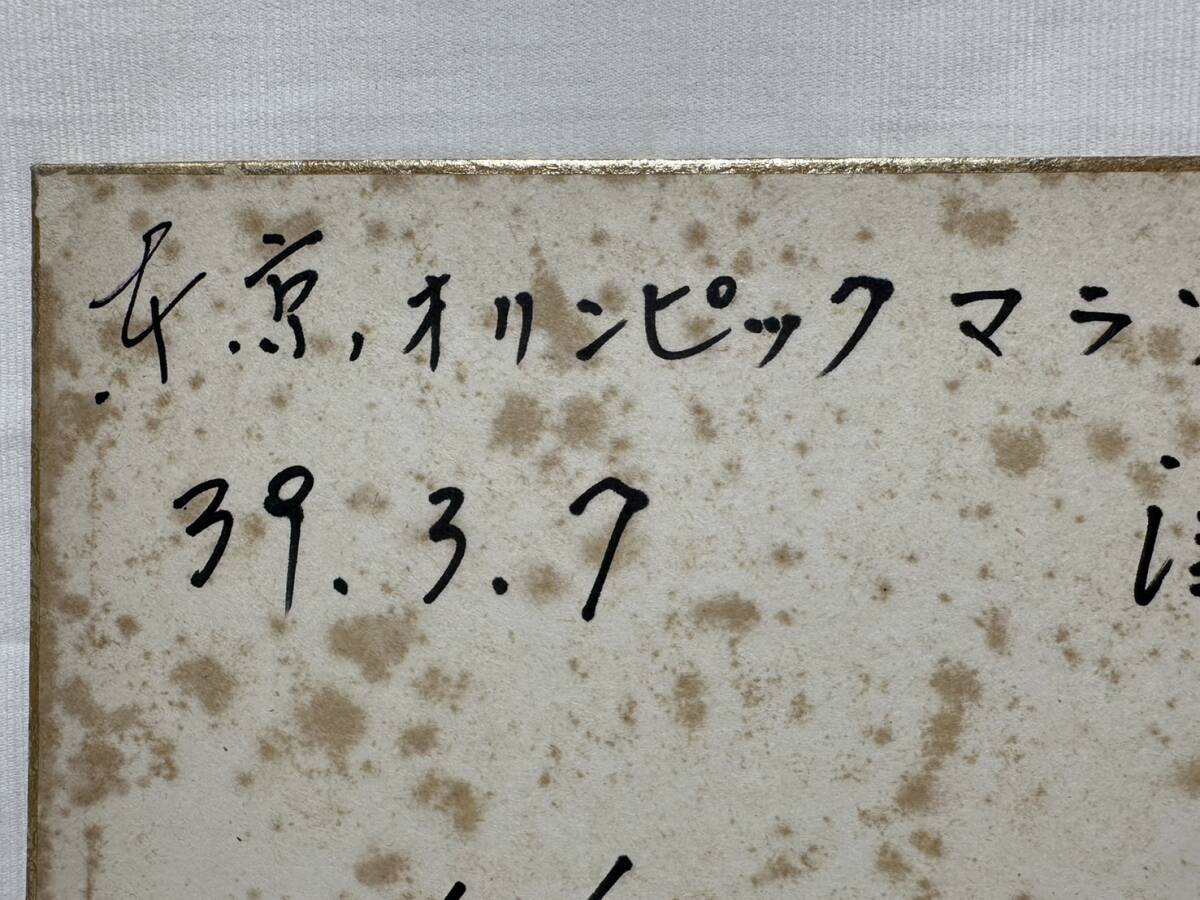 東京オリンピック マラソ
39.3.7